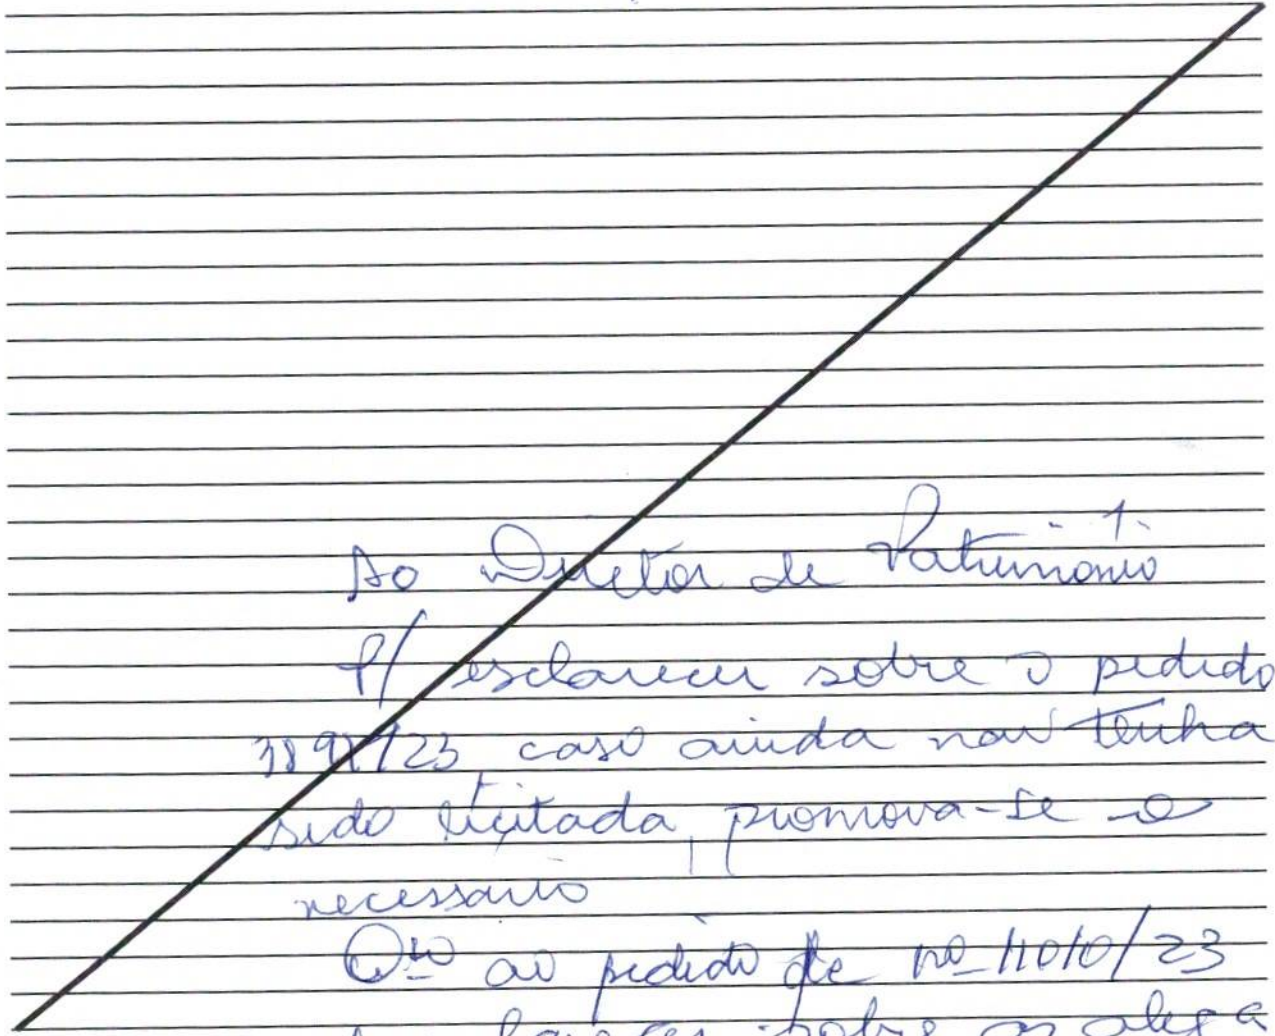 Ao Diretor de Patrimônio
P/ esclarecer sobre o pedido
/23 caso ainda não tenha
sido licitada, promova-se o
necessário
Qto ao pedido de nº 11010/23
sobre as alega